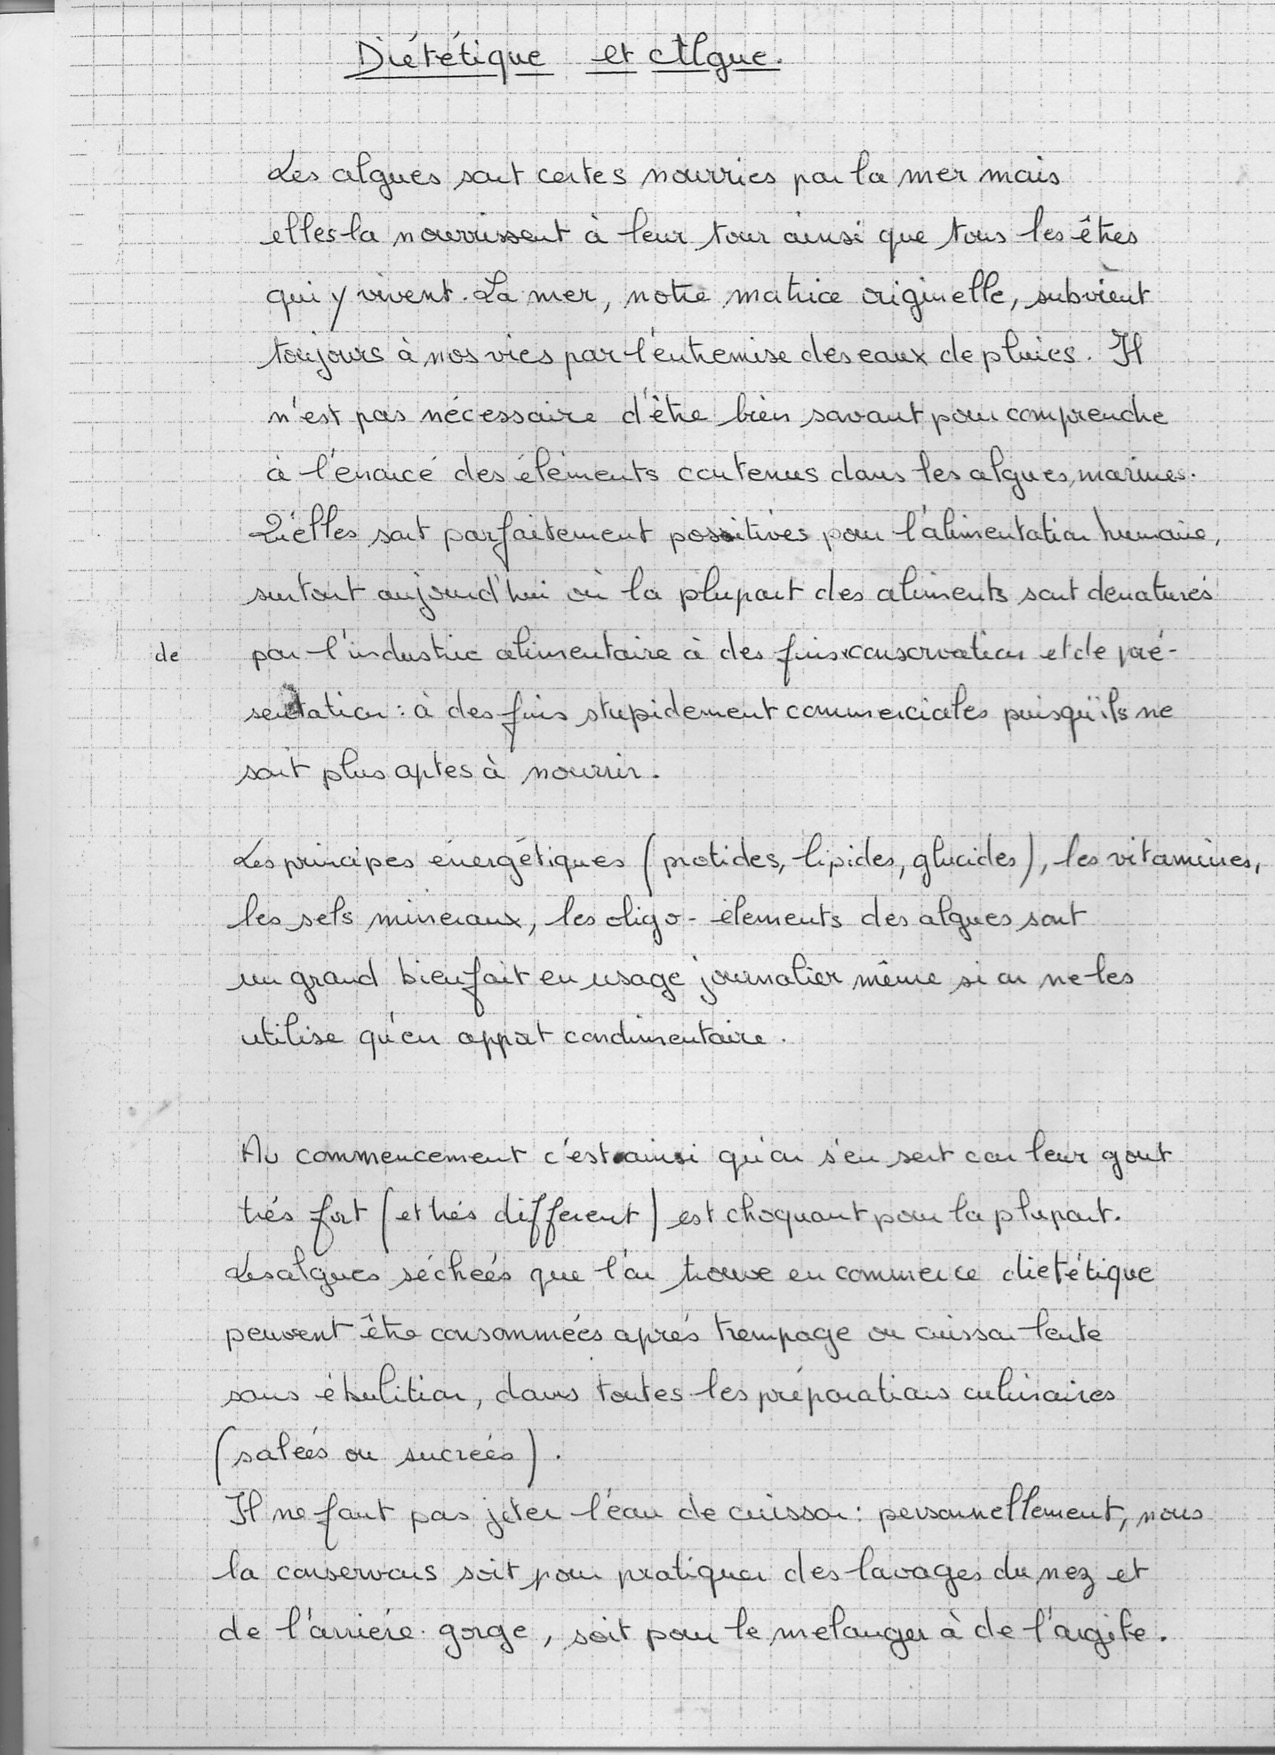 Diététique et Algue.
Les algues sont certes nourries par la mer mais
elles la nourrissent à leur tour ainsi que tous les êtres
qui y vivent. La mer, notre matrice originelle, subvient
toujours à nos vies par l'entremise des eaux de pluies. Il
n'est pas nécessaire d'être bien savant pour comprendre
à l'énoncé des éléments contenus dans les algues marines.
Qu'elles sont parfaitement positives pour l'alimentation humaine,
surtout aujourd'hui où la plupart des aliments sont denaturés
de par l'industrie alimentaire à des fins x conservation et de pré-
sentation : à des fins stupidement commerciales puisqu'ils ne
sont plus aptes à nourrir.
Les principes énergétiques (protides, lipides, glucides), les vitamines,
les sels mineraux, les oligo-élements des algues sont
un grand bienfait en usage journalier même si on ne les
utilise qu'en appoit condimentaire.
Au commencement c'est ainsi qu'on s'en sert car leur gout
trés fort (et trés différent) est choquant pour la plupart.
Les algues séchéés que l'on trouve en commerce dietétique
peuvent être consommées aprés trempage ou cuisson lente
sans ébulition, dans toutes les préparations culinaires
(saléés ou sucréés).
Il ne faut pas jeter l'eau de cuisson : personnellement, nous
la conservons soit pour pratiquer des lavages du nez et
de l'arriére-gorge, soit pour le melanger à de l'argile.